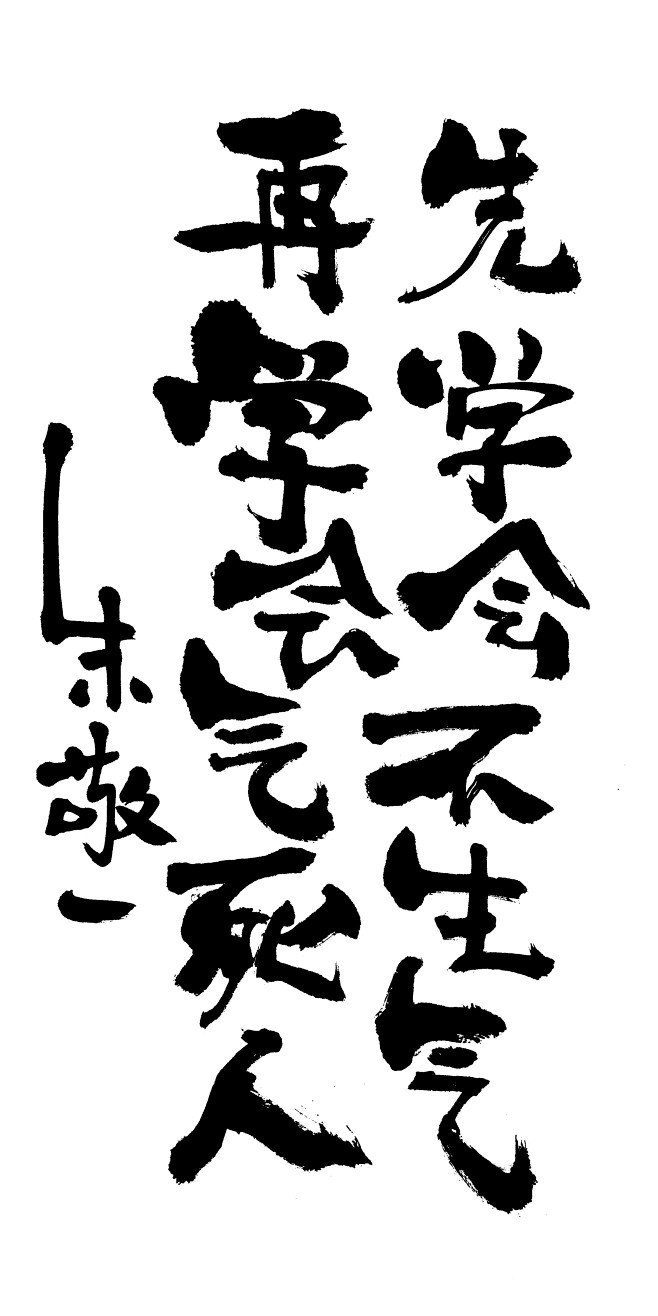 先学会不生气
再学会气死人
朱敬一